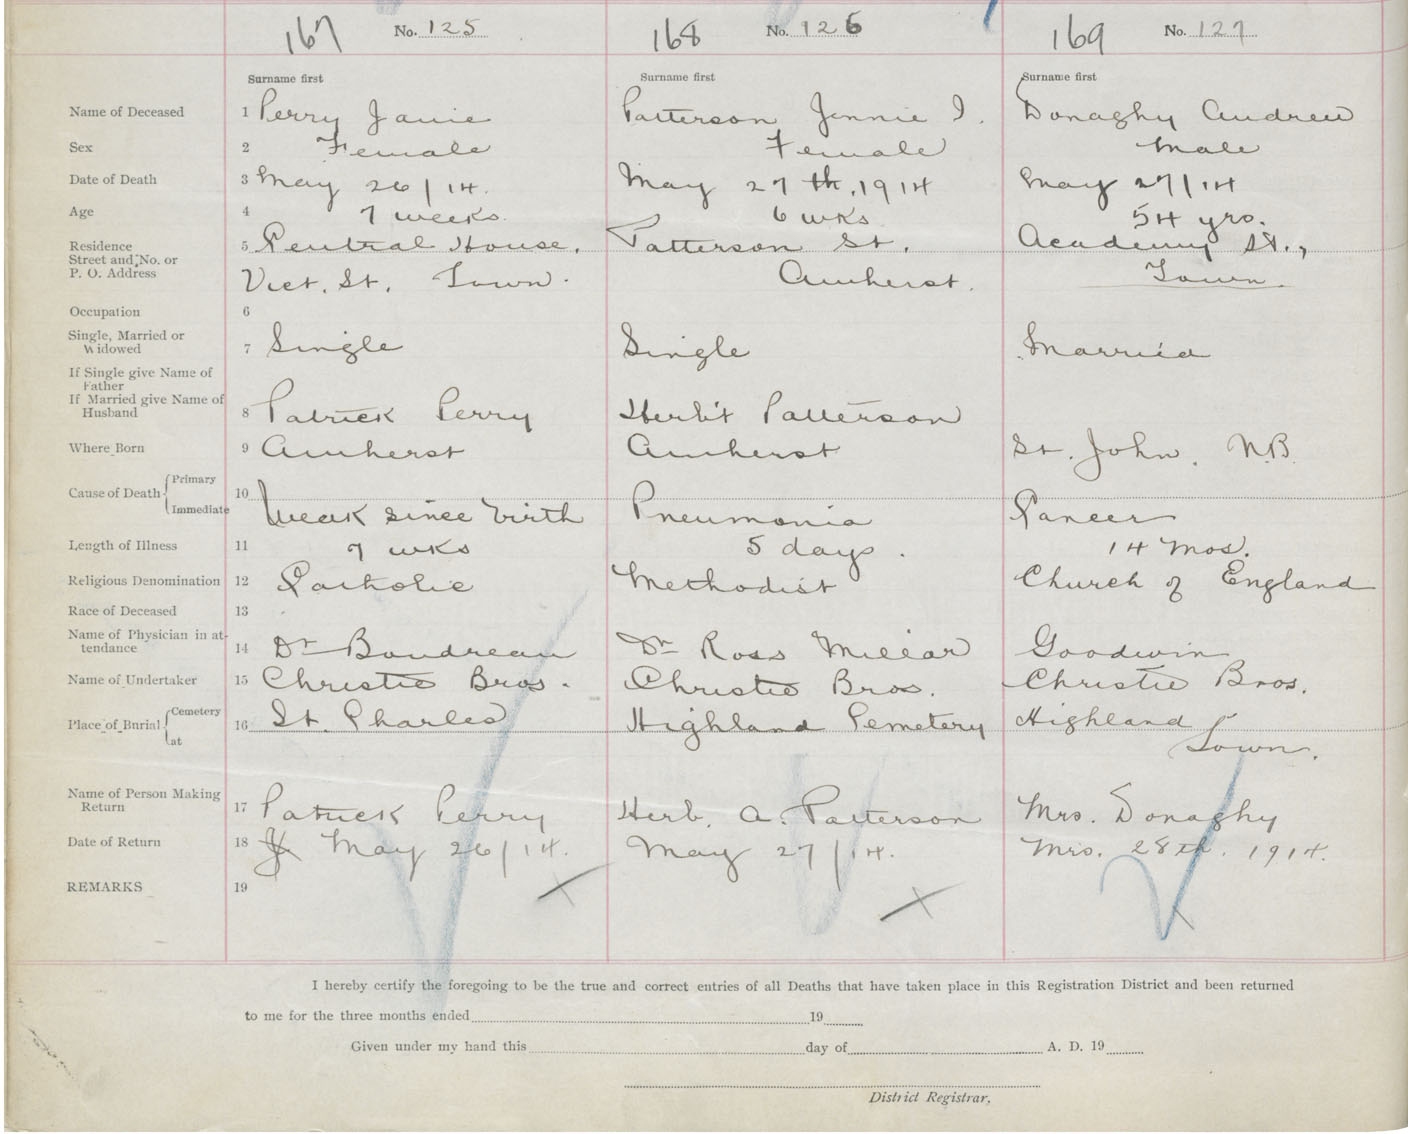 167 No. 125 168 No. 126 169 No. 127
Surname first Surname first Surname first
Name of Deceased 1 Perry Janie Patterson Jennie I. Donaghy Andrew
Sex 2 Female Female Male
Date of Death 3 May 26/14. May 27th, 1914 May 27/14
Age 4 7 weeks. 6 wks 54 yrs.
Residence 5 Central House, Patterson St. Academy St.,
Street and No. or
P. O. Address Vict. St. Town. Amherst. Town.
Occupation 6
Single, Married or
Widowed 7 Single Single Married
If Single give Name of
Father
If Married give Name of
Husband 8 Patrick Perry Herb't Patterson
Where Born 9 Amherst Amherst St. John. N.B.
Primary
Cause of Death 10
Immediate Weak since birth Pneumonia Cancer
Length of Illness 11 7 wks 5 days. 14 mos.
Religious Denomination 12 Catholic Methodist Church of England
Race of Deceased 13
Name of Physician in at-
tendance 14 Dr Boudreau Dr Ross Millar Goodwin
Name of Undertaker 15 Christie Bros. Christie Bros. Christie Bros.
Cemetery
Place of Burial 16 St. Charles Highland Cemetery Highland
at Town.
Name of Person Making
Return 17 Patrick Perry Herb. A. Patterson Mrs. Donaghy
Date of Return 18 May 26/14. May 27/14. Mrs. 28th. 1914.
REMARKS 19
I hereby certify the foregoing to be the true and correct entries of all Deaths that have taken place in this Registration District and been returned
to me for the three months ended 19
Given under my hand this day of A. D. 19
District Registrar,